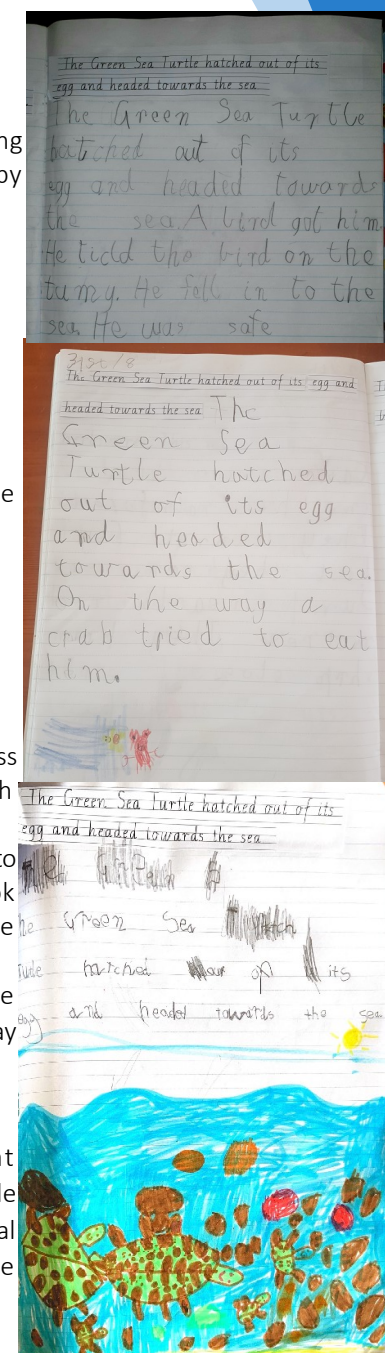 The Green Sea Turtle hatched out of its
egg and headed towards the sea
The Green Sea Turtle
hatched out of its
egg and headed towards
the sea. A bird got him.
He ticld the bird on the
tumy. He fell in to the
sea. He was safe
31st/8
The Green Sea Turtle hatched out of its egg and
headed towards the sea The
Green Sea
Turtle hatched
out of its egg
and headed
towards the sea.
On the way a
crab tried to eat
him.
The Green Sea Turtle hatched out of its
egg and headed towards the sea
he Green Sea
hatched out of its
egg and headed towards the sea